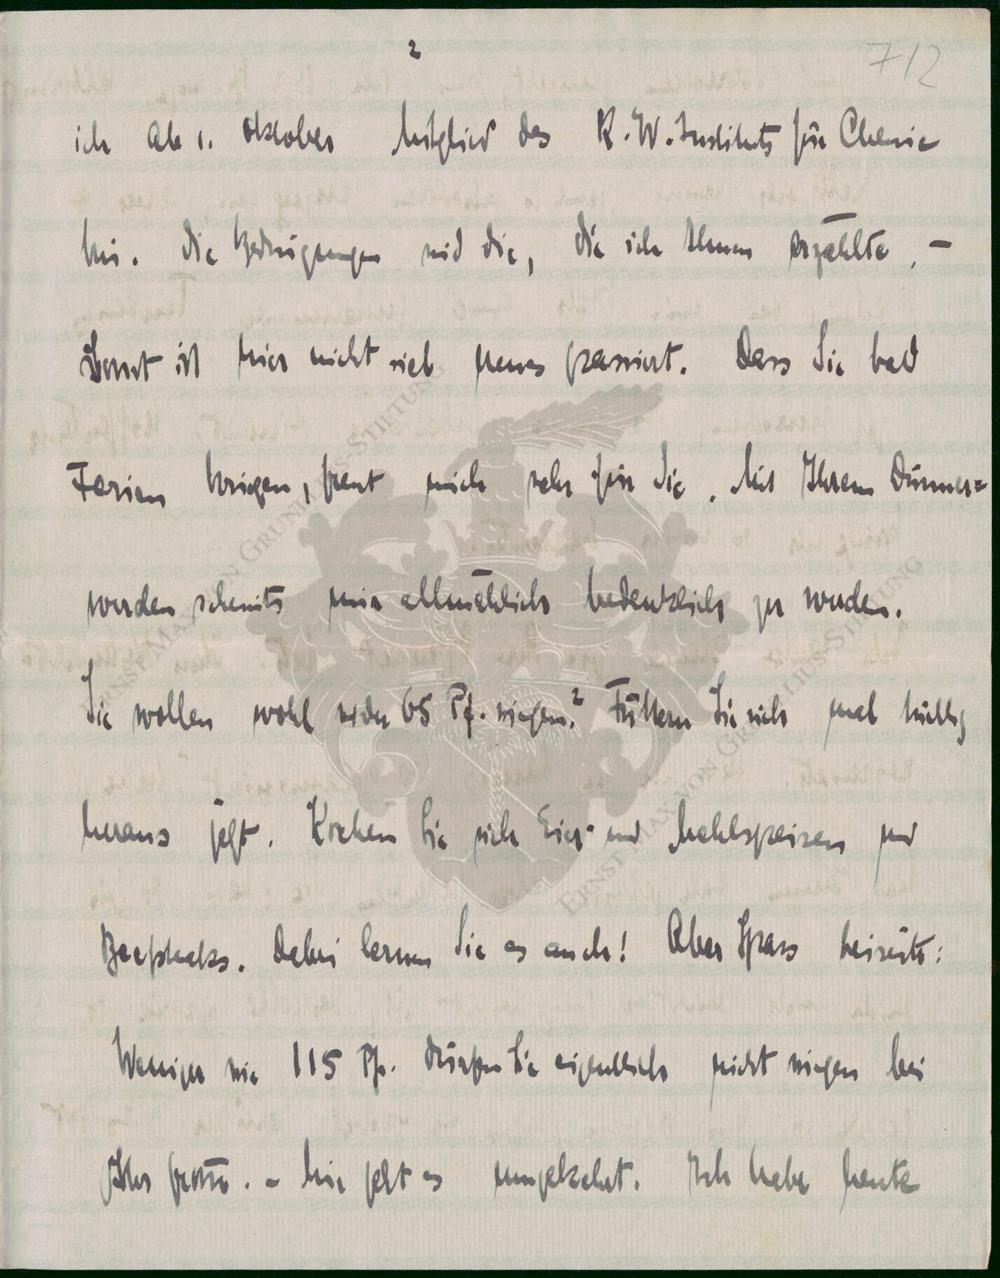 2
712
ich ab 1. Oktober Mitglied des K.W. Instituts für Chemie
bin. Die Bedingungen sind die, die ich Ihnen erzählte. —
Sonst ist hier nicht viel neues passiert. Dass Sie bald
Ferien kriegen, freut mich sehr für Sie. Mit Ihrem Dünner=
werden scheints mir allmählich bedenklich zu werden.
Sie wollen wohl wieder 65 Pf. wiegen? Füttern Sie sich mal tüchtig
heraus jetzt. Kochen Sie sich Eier- und Mehlspeisen und
Beefsteaks. Dabei lernen Sie es auch! Aber Spass beiseite:
Weniger wie 115 Pf. dürfen Sie eigentlich nicht wiegen bei
Ihrer Grösse. – Mir geht es umgekehrt. Ich habe heute
ERNST MAX VON GRUNELIUS-STIFTUNG
ERNST MAX VON GRUNELIUS-STIFTUNG